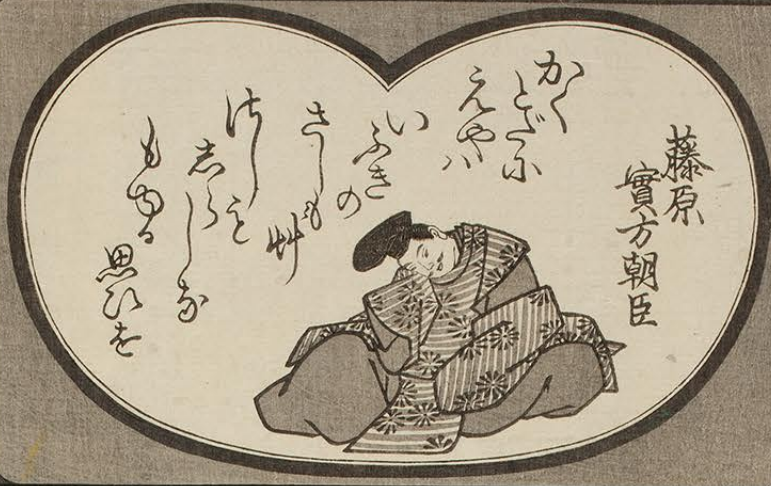 藤原
實方朝臣
かく
とだに
えやハ
いふきの
さしも艸
さしも
志らしな
もゆる
思ひを